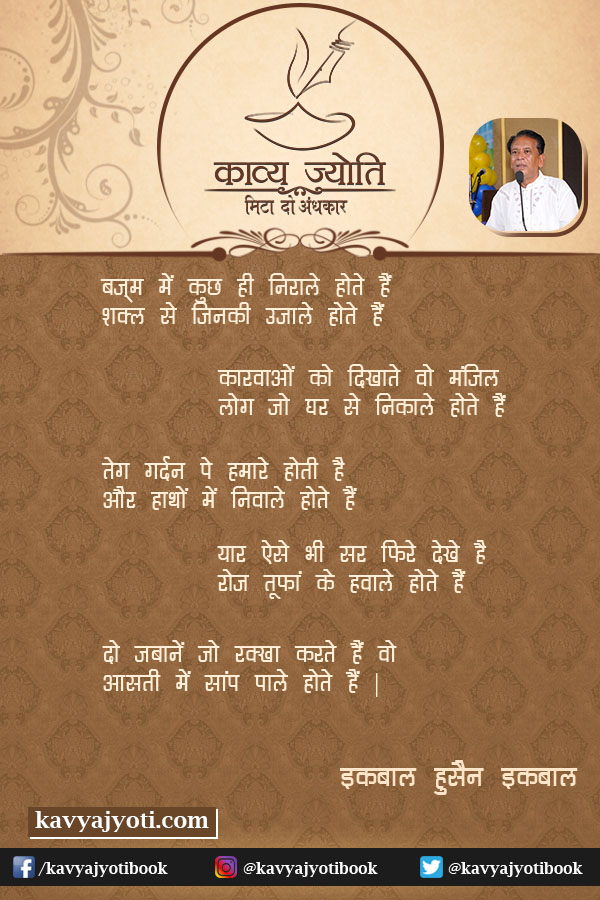 काव्य ज्योति
मिटा दो अंधकार
बज़्म में कुछ ही निराले होते हैं
शक्ल से जिनकी उजाले होते हैं
कारवाओं को दिखाते वो मंजिल
लोग जो घर से निकाले होते हैं
तेग गर्दन पे हमारे होती है
और हाथों में निवाले होते हैं
यार ऐसे भी सर फिरे देखे है
रोज तूफां के हवाले होते हैं
दो जबानें जो रक्खा करते हैं वो
आसती में सांप पाले होते हैं |
इकबाल हुसैन इकबाल
kavyajyoti.com
/kavyajyotibook
@kavyajyotibook
@kavyajyotibook